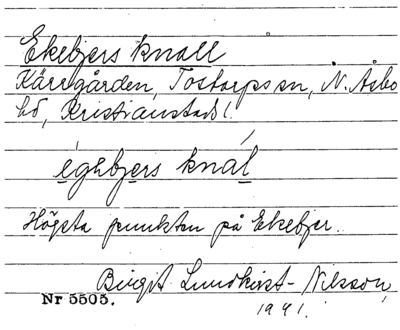 Ekebjers knall
Kärregården, Tostarps sn, N. Åsbo
hd, Kristianstads l.
égebjers knál
Högsta punkten på Ekebjer.
Birgit Lundkvist-Nilsson,
Nr 5505.
1941.